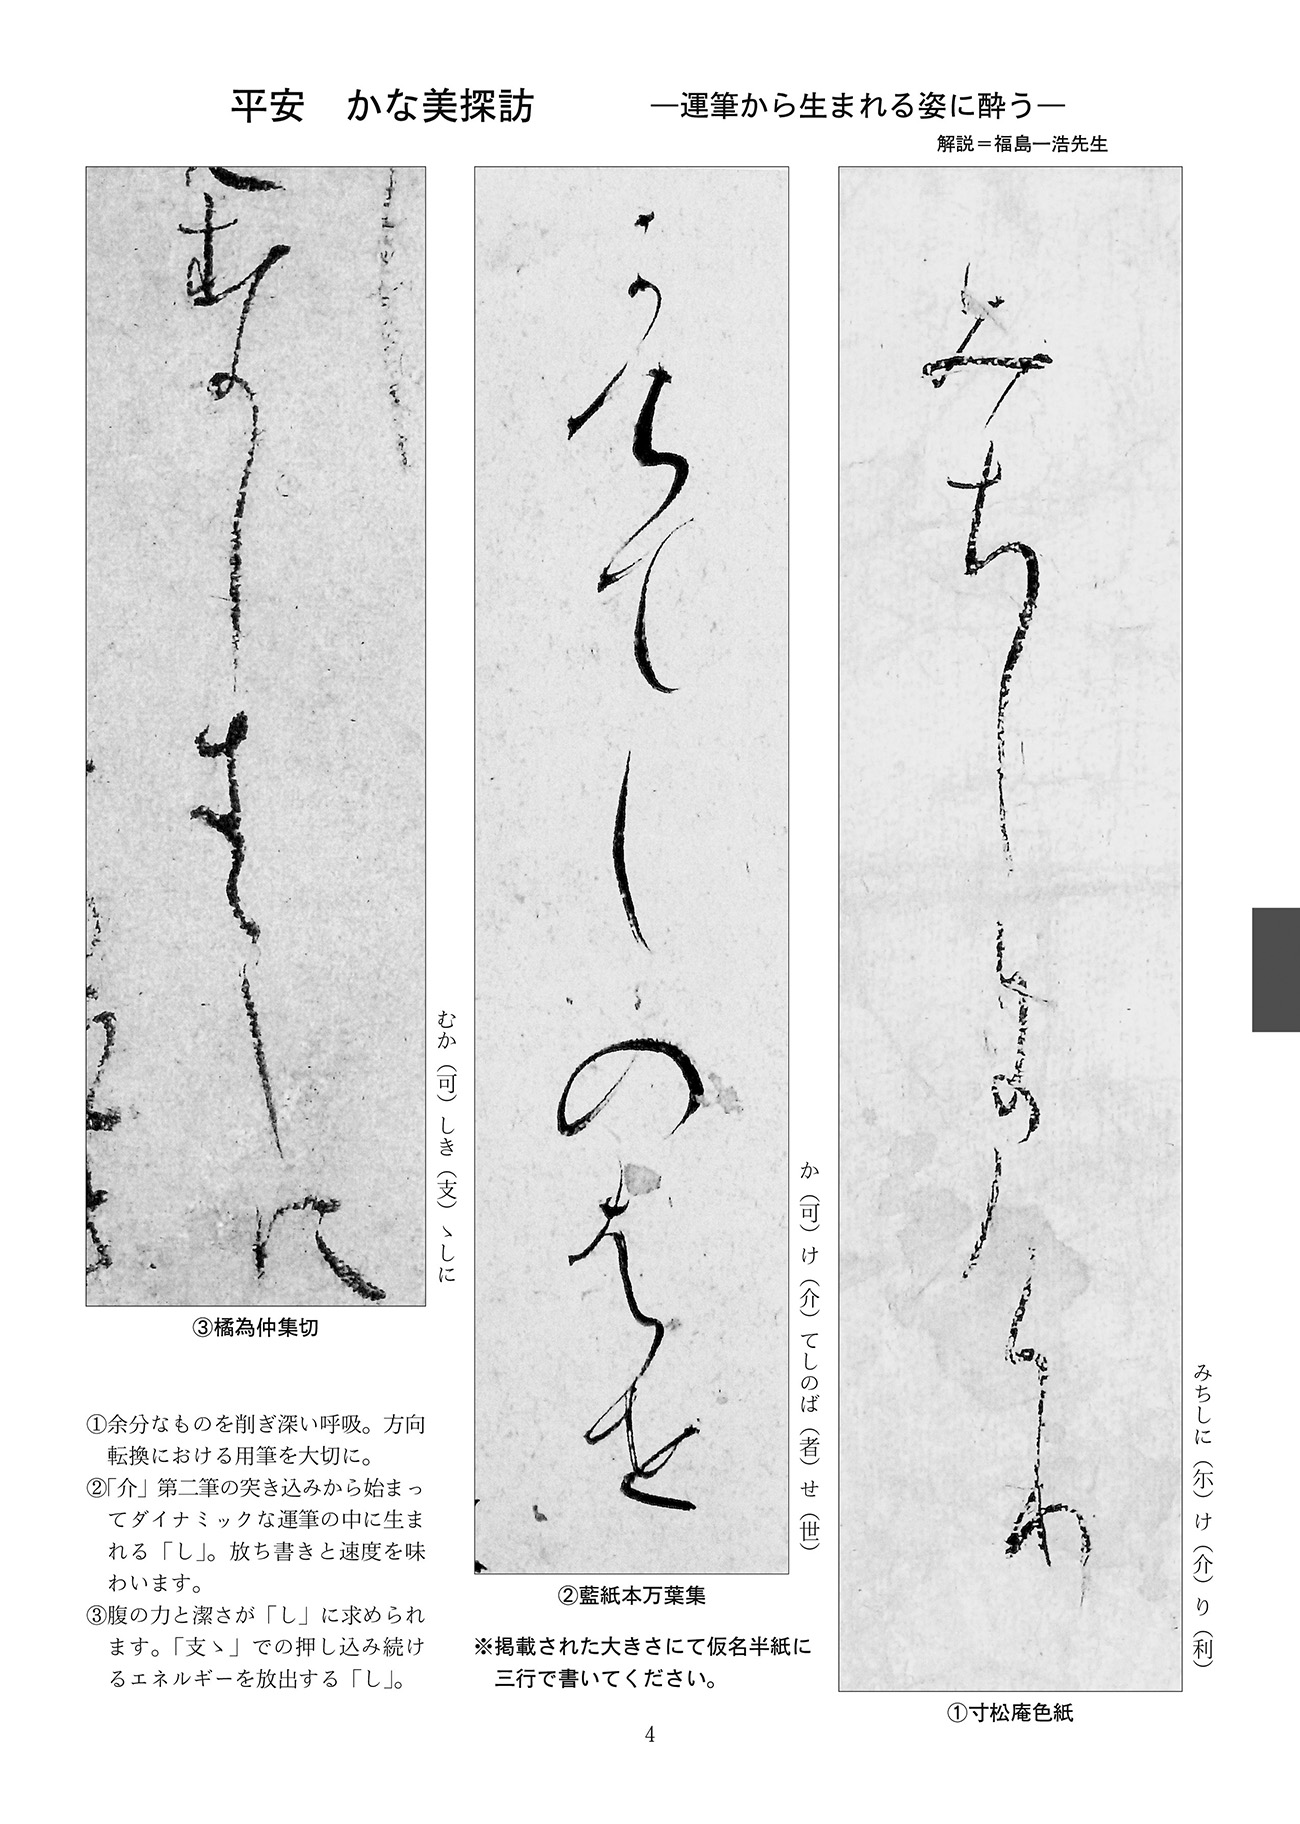 平安　かな美探訪　―運筆から生まれる姿に酔う―
解説＝福島一浩先生
みちしに（尓）け（介）り（利）
①寸松庵色紙
か（可）け（介）てしのば（者）せ（世）
②藍紙本万葉集
むか（可）しき（支）ゝしに
③橘為仲集切
※掲載された大きさにて仮名半紙に
三行で書いてください。
①余分なものを削ぎ深い呼吸。方向
転換における用筆を大切に。
②「介」第二筆の突き込みから始まっ
てダイナミックな運筆の中に生ま
れる「し」。放ち書きと速度を味
わいます。
③腹の力と潔さが「し」に求められ
ます。「支ゝ」での押し込み続け
るエネルギーを放出する「し」。
4